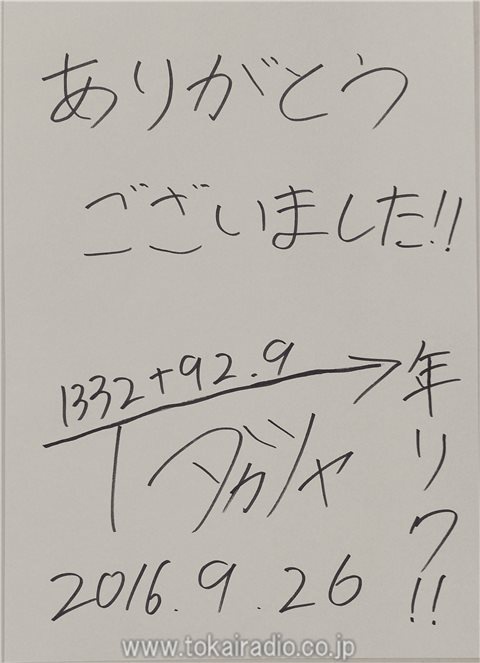 ありがとう
ございました!!
1332+92.9
年リク!!
2016.9.26
www.tokairadio.co.jp